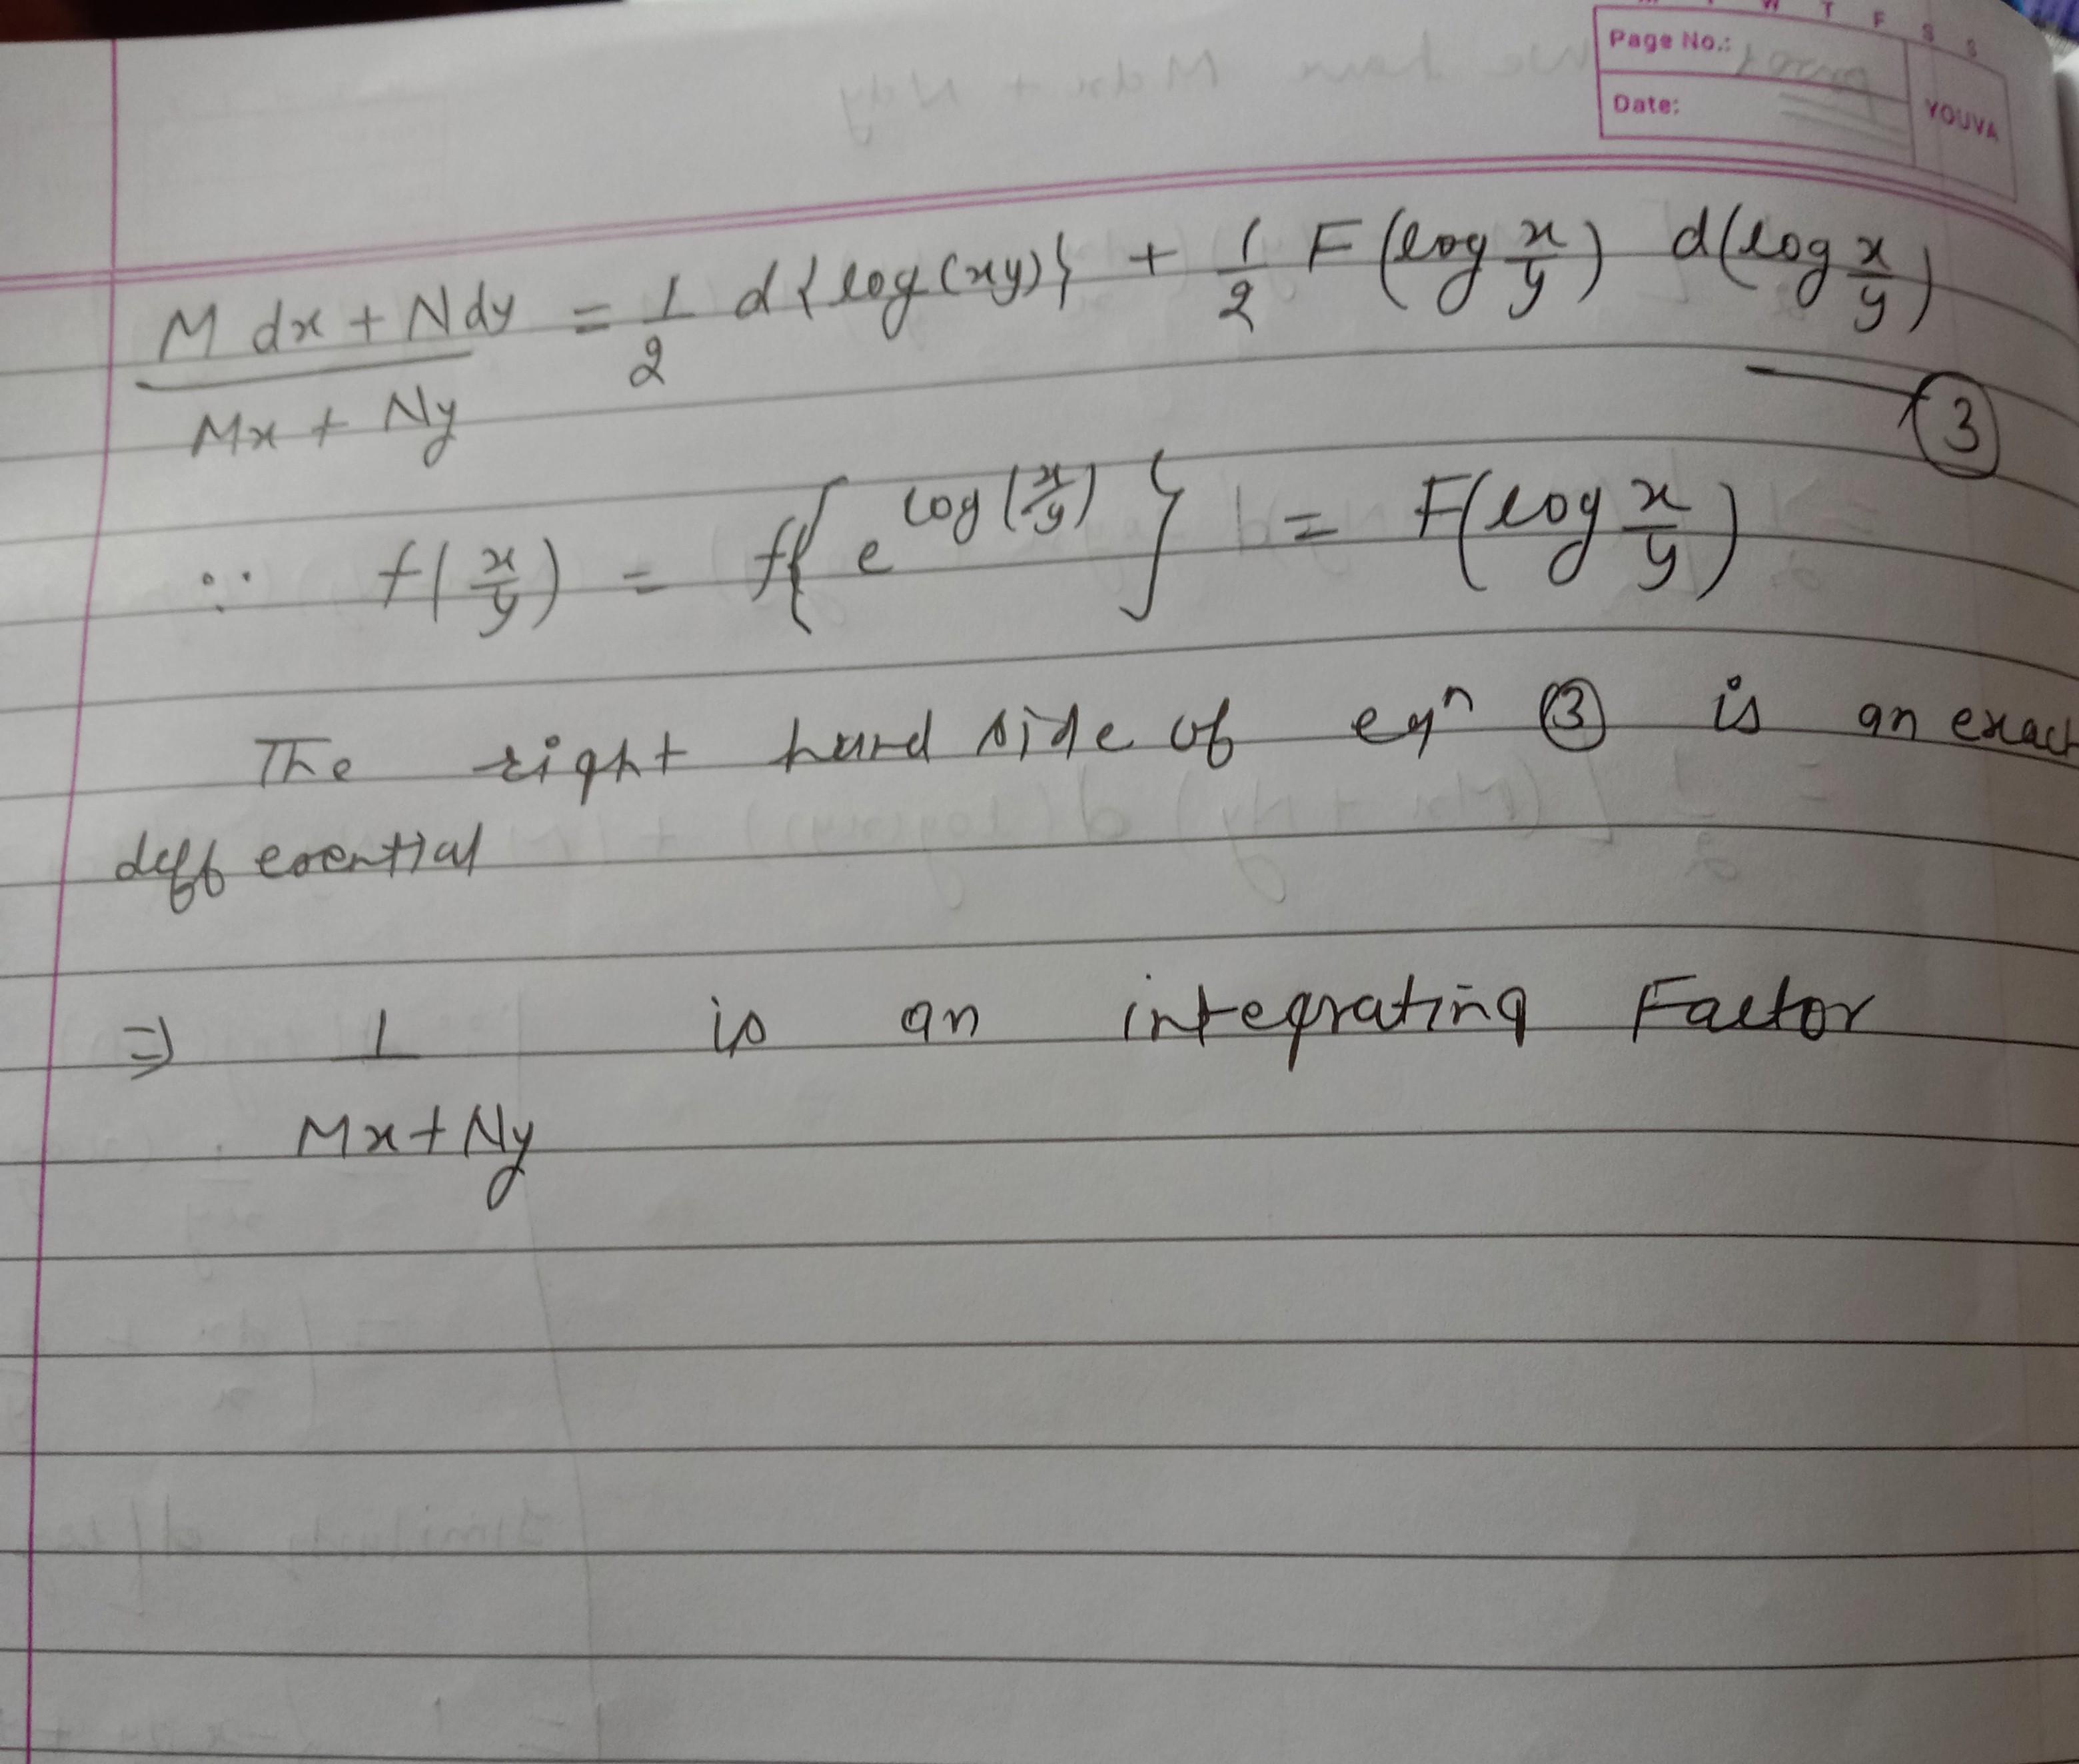 M T W T F S S
Page No.:
Date:
YOUVA
M dx + N dy / Mx + Ny = 1/2 d{log(xy)} + 1/2 F(log x/y) d(log x/y)
3
∵ f(x/y) = f{e^log(x/y)} = F(log x/y)
The right hand side of eqn 3 is an exact
differential
⇒ 1 / Mx + Ny is an integrating Factor